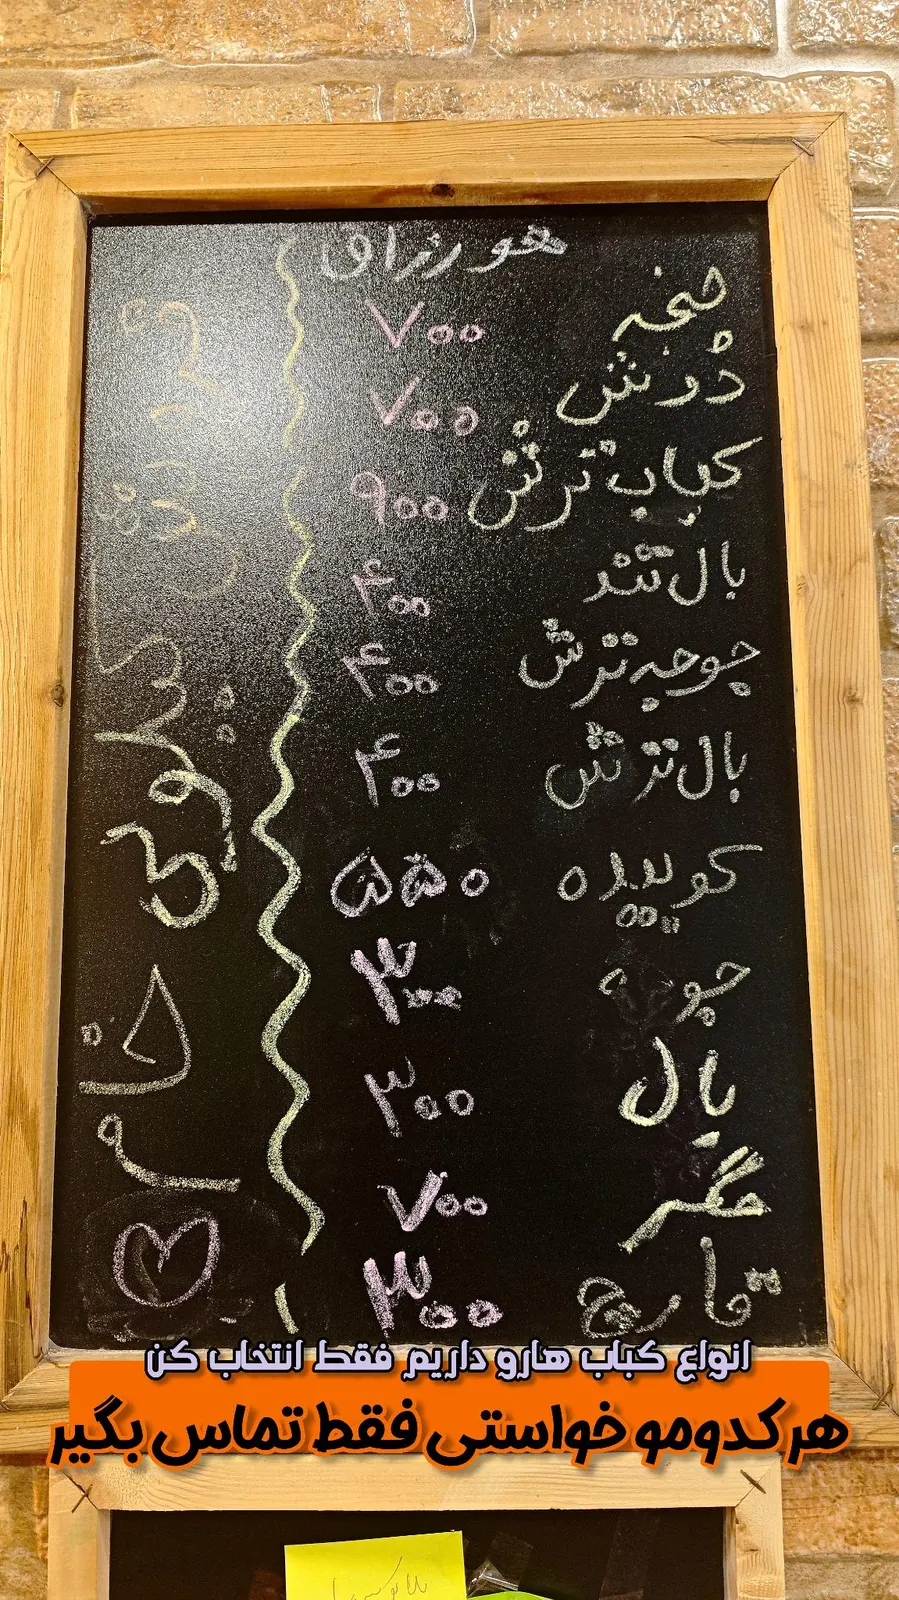 هو رزاق
صنجه ۷۰۰
دُرش ۷۰۰
کباب ترش ۹۰۰
بال تند ۴۰۰
جوجه ترش ۴۰۰
بال ترش ۴۰۰
کوبیده ۵۵۰
جوجه ۳۰۰
بال ۳۰۰
جگر ۷۰۰
قارچ ۳۰۰
کیلویی
خام
انواع کباب هارو داریم فقط انتخاب کن
هر کدومو خواستی فقط تماس بگیر